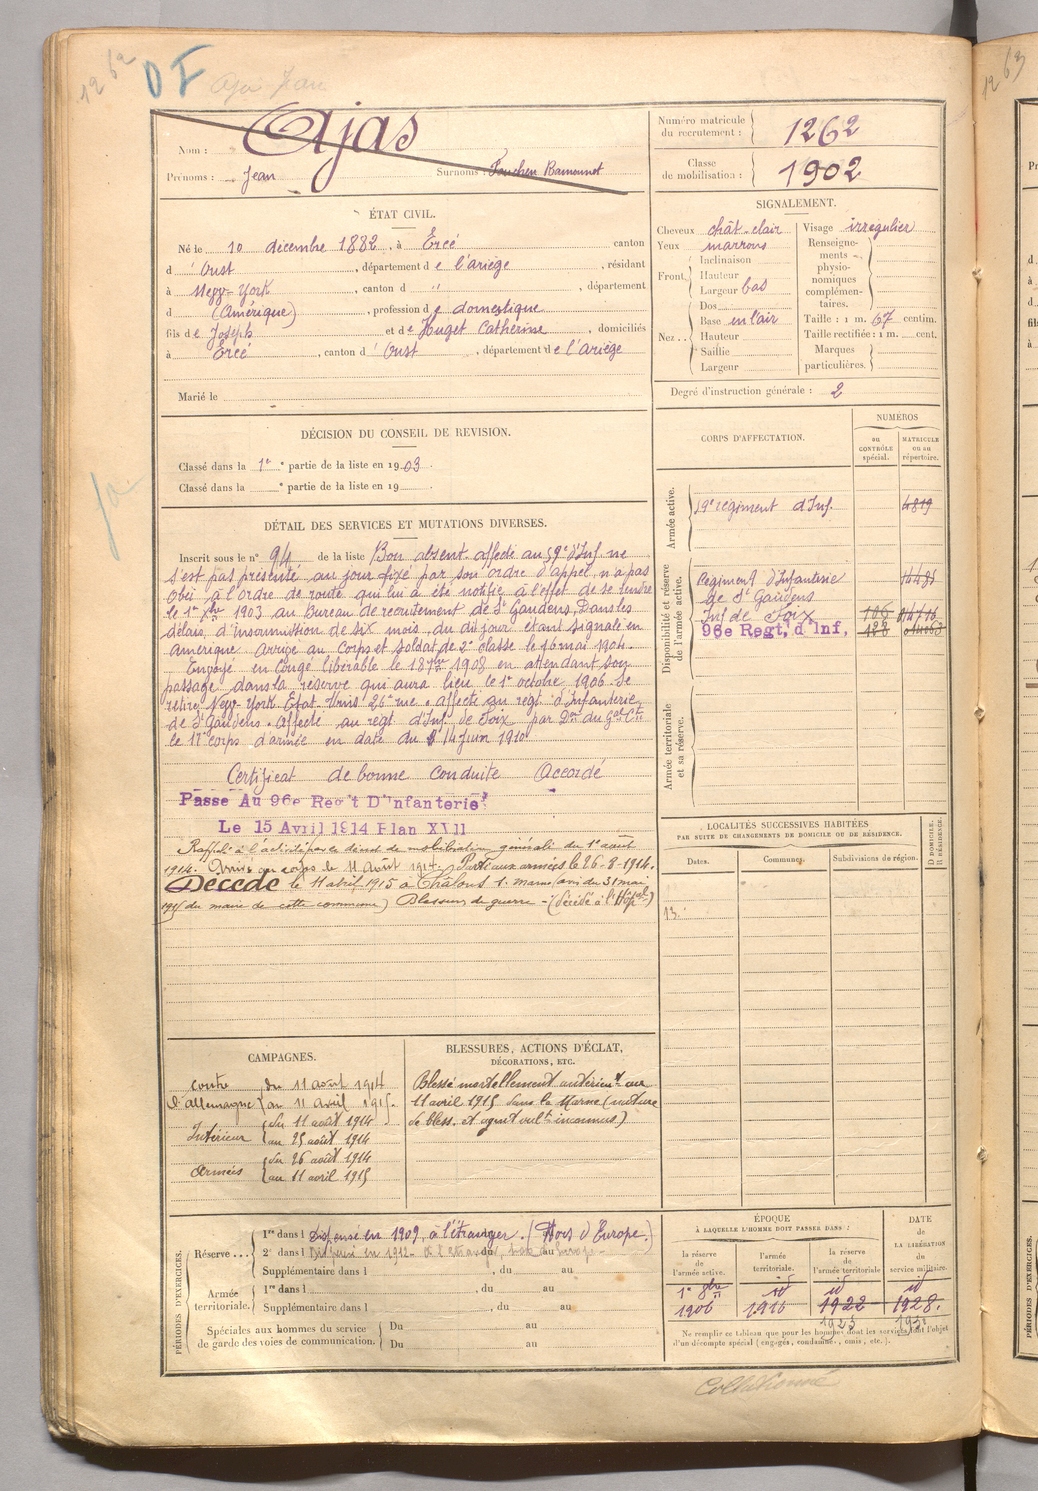 1262
DF
Ajas Jean
Nom : Ajas
Prénoms : Jean
Surnoms :
Numéro matricule du recrutement : 1262
Classe de mobilisation : 1902
ÉTAT CIVIL.
Né le 10 décembre 1882, à Ercé canton
d'Oust, département de l'ariège, résidant
à New-York, canton d " , département
d (Amérique), profession de domestique
fils de Joseph et de Huget Catherine, domiciliés
à Ercé, canton d'Oust, département de l'ariège
Marié le
SIGNALEMENT.
Cheveux chât-clair
Yeux marrons
Front.
Inclinaison
Hauteur
Largeur bas
Nez..
Dos
Base en l'air
Hauteur
Saillie
Largeur
Visage irrégulier
Renseignements physionomiques complémentaires.
Taille : 1 m. 67 centim.
Taille rectifiée : 1 m. cent.
Marques particulières.
Degré d'instruction générale : 2
DÉCISION DU CONSEIL DE REVISION.
Classé dans la 1re partie de la liste en 1903.
Classé dans la e partie de la liste en 19
DÉTAIL DES SERVICES ET MUTATIONS DIVERSES.
Inscrit sous le n° 94 de la liste Bon absent. affecté au 59e d'Inf. ne
s'est pas présenté au jour fixé par son ordre d'appel, n'a pas
obéi à l'ordre de route qui lui a été notifié à l'effet de se rendre
le 1er Xbre 1903 au Bureau de recrutement de St Gaudens. Dans les
délais d'insoumission de six mois, du dit jour étant signalé en
Amérique. Arrivé au corps et soldat de 2e classe le 16 mai 1904.
Envoyé en congé libérable le 18 en attendant son
passage dans la réserve qui aura lieu le 1er octobre 1906. Se
retire New-York Etat-Unis 26e rue. affecté au regt d'Infanterie
de St Gaudens. Affecté au régt d'Inf de Foix par Don du Gal Ct
le 17e corps d'armée en date du 14 Juin 1910
Certificat de bonne conduite Accordé
Passé Au 96e Reg't D'Infanterie
Le 15 Avril 1914 Plan XVII
Rappelé à l'activité par ce décret de mobilisation générale du 1er août
1914. Arrivé au corps le 11 Août 1914. Parti aux armées le 26-8-1914.
Décédé le 11 avril 1915 à Châlons s. marne (avis du 31 mai
1915 du maire de cette commune) Blessures de guerre - (décédé à l'Hôpal)
CORPS D'AFFECTATION.
NUMÉROS
au CONTRÔLE spécial.
MATRICULE ou au répertoire.
Armée active.
59e régiment d'Inf. 4819
Disponibilité et réserve de l'armée active.
Régiment d'Infanterie
de St Gaudens
Inf de Foix
96e Regt, d'Inf,
Armée territoriale et sa réserve.
LOCALITÉS SUCCESSIVES HABITÉES
PAR SUITE DE CHANGEMENTS DE DOMICILE OU DE RÉSIDENCE.
Dates.
Communes.
Subdivisions de région.
D DOMICILE. R RÉSIDENCE.
13.
CAMPAGNES.
contre l'allemagne
du 11 août 1914
au 11 Avril 1915.
Intérieur
du 11 août 1914
au 25 août 1914
Armées
du 26 août 1914
au 11 avril 1915
BLESSURES, ACTIONS D'ÉCLAT,
DÉCORATIONS, ETC.
Blessé mortellement antérieurt au
11 avril 1915 dans la Marne (nature
de bless. et agent vult inconnus)
PÉRIODES D'EXERCICES.
Réserve...
1re dans l Dispensé en 1909, à l'étranger. (Hors d'Europe.)
2e dans l Dispensé en 1912 - à l'étranger, hors d'Europe -
Supplémentaire dans l , du au
Armée territoriale.
1re dans l , du au
Supplémentaire dans l , du au
Spéciales aux hommes du service de garde des voies de communication.
Du au
Du au
ÉPOQUE
À LAQUELLE L'HOMME DOIT PASSER DANS :
la réserve de l'armée active.
l'armée territoriale.
la réserve de l'armée territoriale
DATE de LA LIBÉRATION du service militaire.
1er 8bre 1906
id 1916
id 1922
id 1928.
Ne remplir ce tableau que pour les hommes dont les services font l'objet
d'un décompte spécial (engagés, condamnés, omis, etc.).
Collationné
1263
PÉRIODES D'EXERCICES.